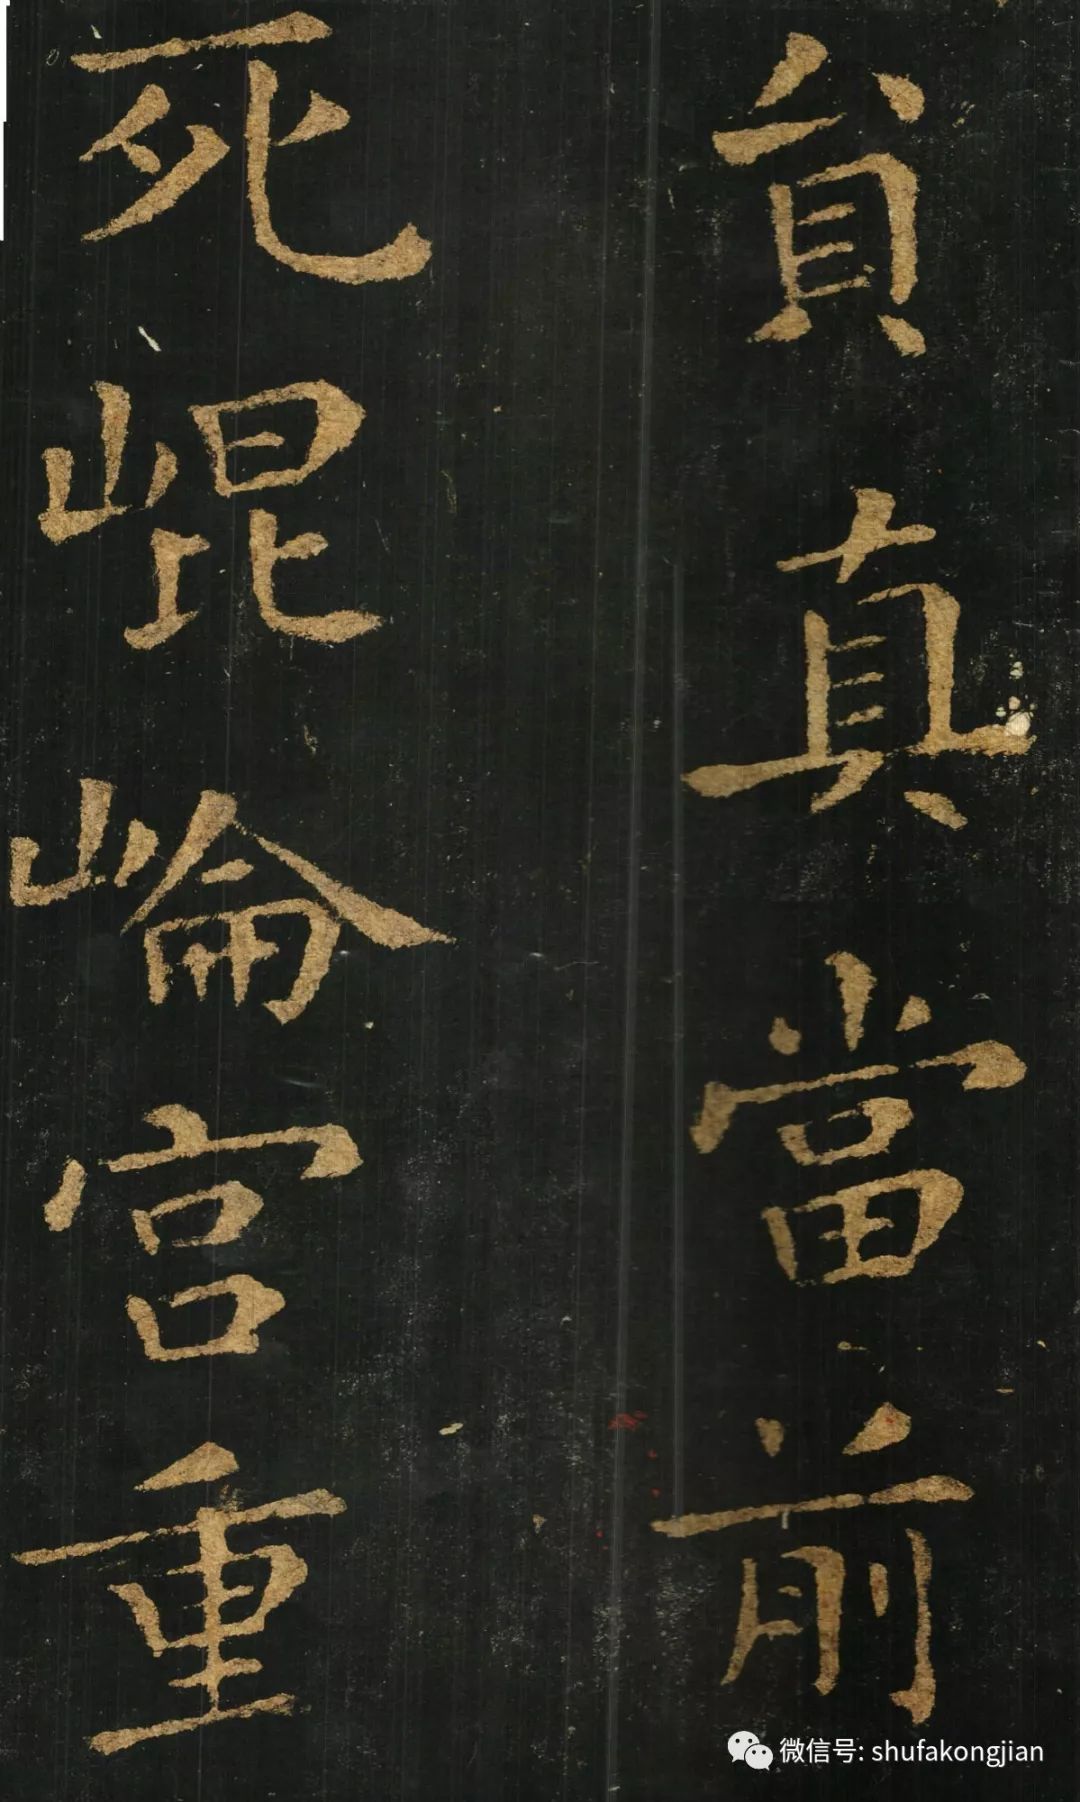 負真當前
死崐崘宫重
微信号: shufakongjian